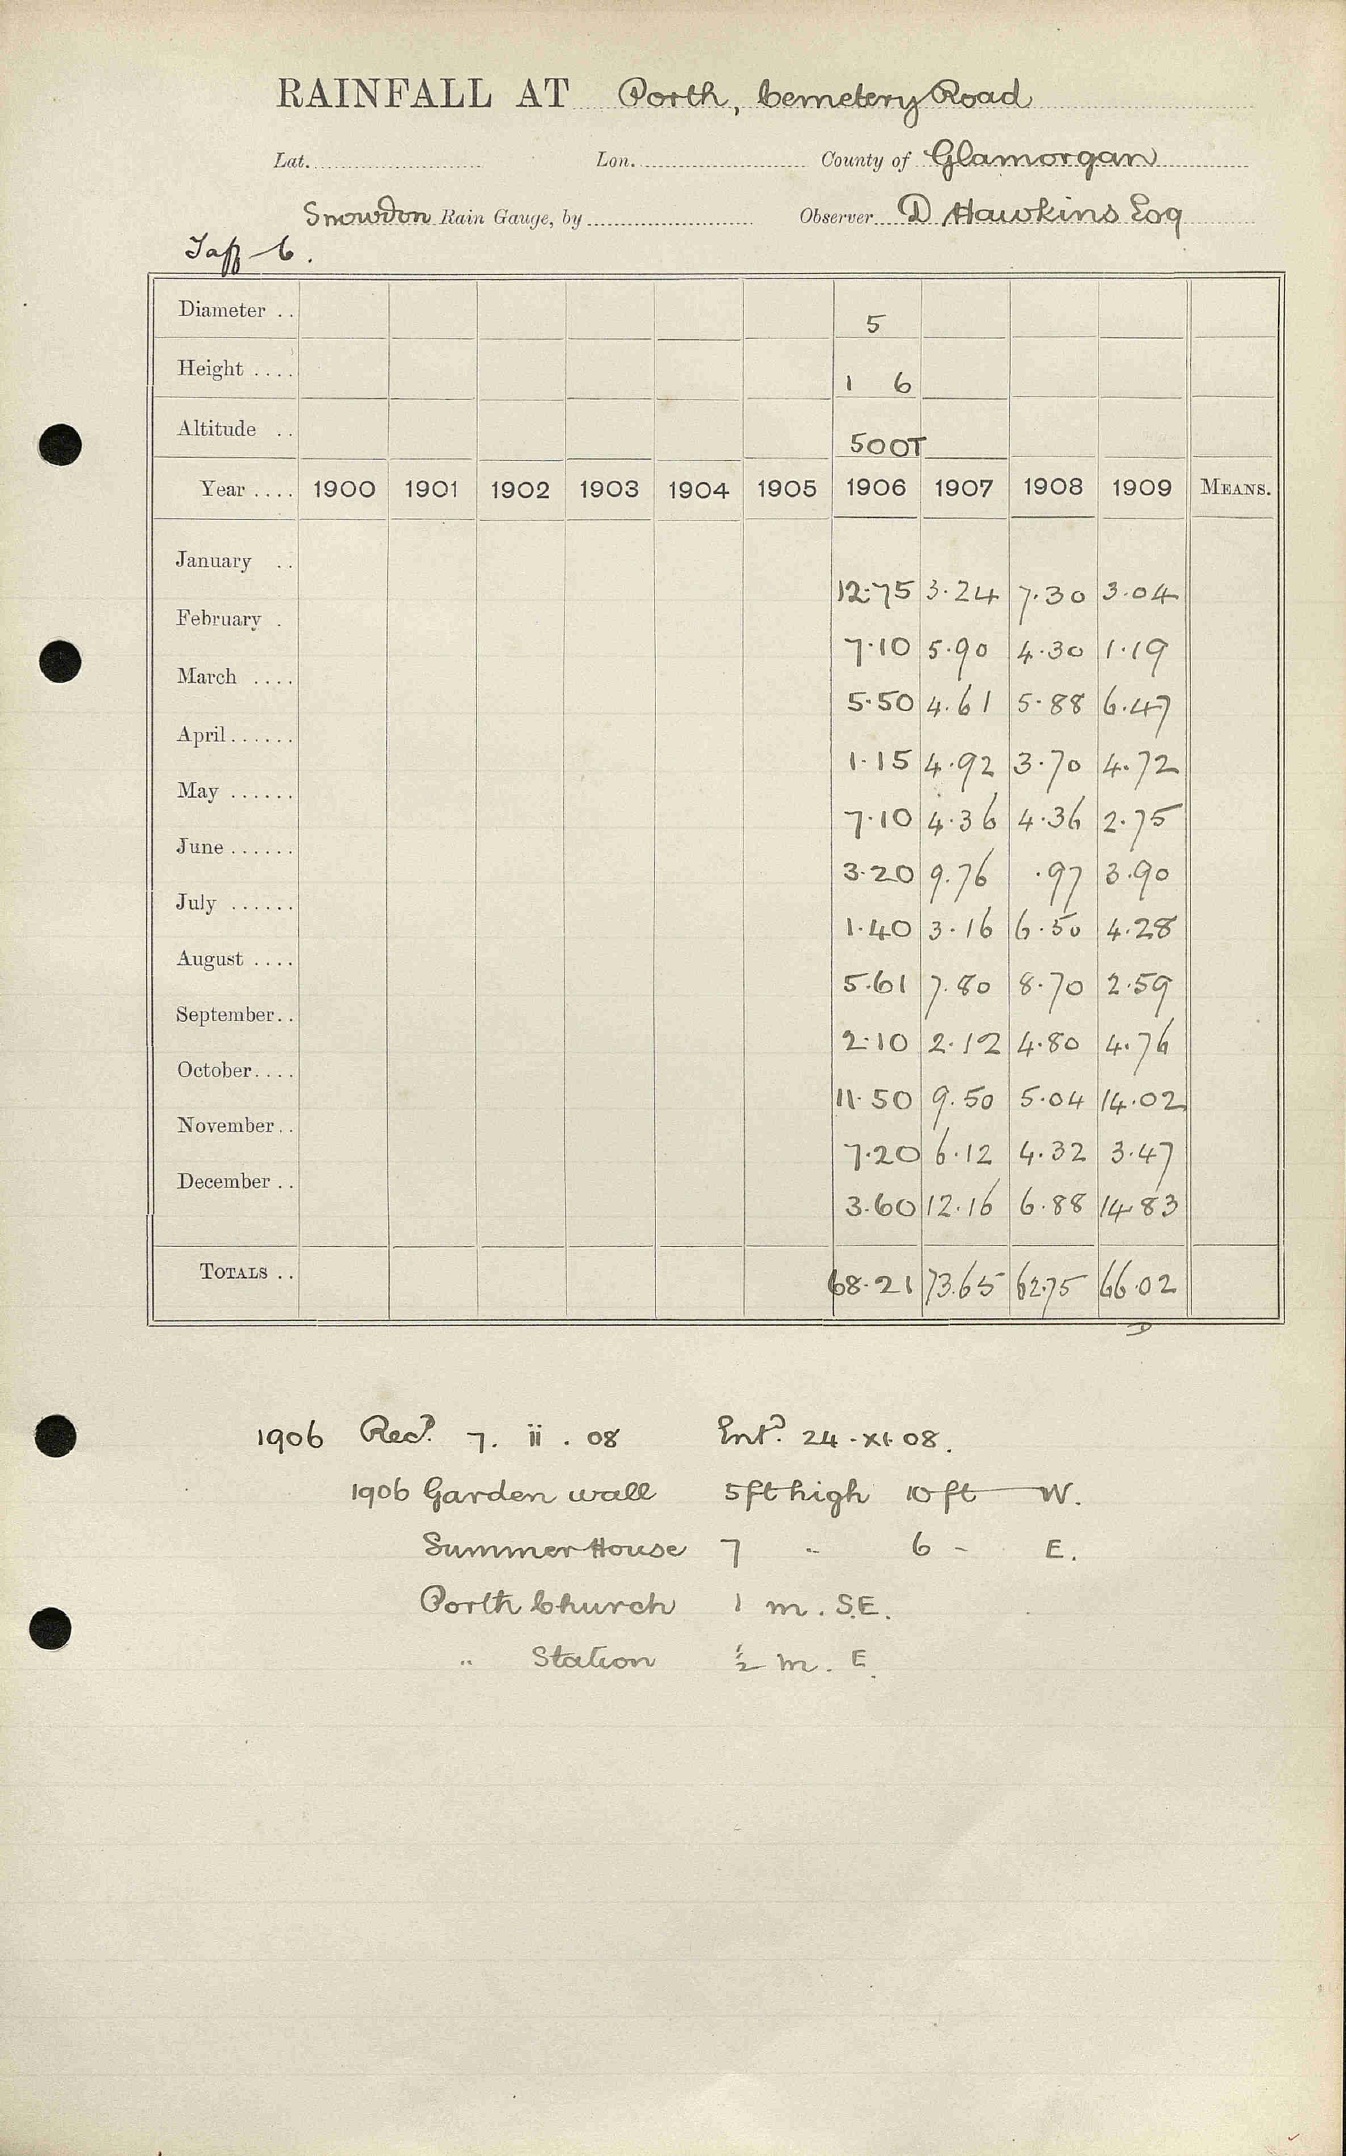 RAINFALL AT Porth, Cemetery Road
Lat. Lon. County of Glamorgan
Snowdon Rain Gauge, by Observer D Hawkins Esq
Taff 6.
Diameter .. 5
Height .... 1 6
Altitude .. 500T
Year .... 1900 1901 1902 1903 1904 1905 1906 1907 1908 1909 MEANS.
January .. 12.75 3.24 7.30 3.04
February . 7.10 5.90 4.30 1.19
March .... 5.50 4.61 5.88 6.47
April...... 1.15 4.92 3.70 4.72
May ...... 7.10 4.36 4.36 2.75
June ...... 3.20 9.76 .97 3.90
July ...... 1.40 3.16 6.50 4.28
August .... 5.61 7.80 8.70 2.59
September.. 2.10 2.12 4.80 4.76
October.... 11.50 9.50 5.04 14.02
November.. 7.20 6.12 4.32 3.47
December .. 3.60 12.16 6.88 14.83
TOTALS .. 68.21 73.65 62.75 66.02
D
1906 Recd. 7. ii . 08 Entd. 24.xi.08.
1906 Garden wall 5ft high 10ft W.
Summer House 7 " 6 - E.
Porth Church 1 m. S.E.
" Station ½ m. E.